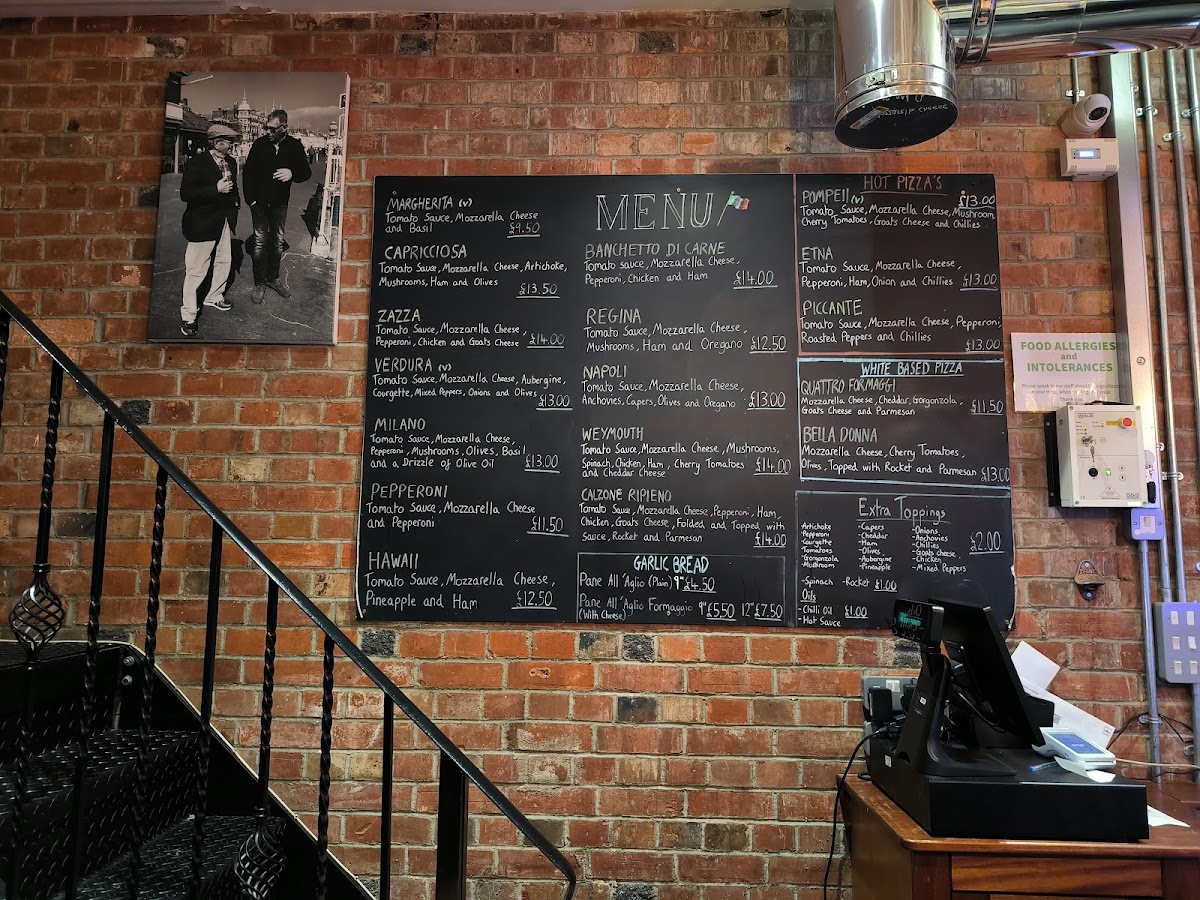 MARGHERITA (v)
Tomato Sauce, Mozzarella Cheese
and Basil
£9.50
CAPRICCIOSA
Tomato Sauce, Mozzarella Cheese, Artichoke,
Mushrooms, Ham and Olives
£13.50
ZAZZA
Tomato Sauce, Mozzarella Cheese,
Pepperoni, Chicken and Goats Cheese £14.00
VERDURA (v)
Tomato Sauce, Mozzarella Cheese, Aubergine,
Courgette, Mixed Peppers, Onions and Olives £13.00
MILANO
Tomato Sauce, Mozzarella Cheese,
Pepperoni, Mushrooms, Olives, Basil
and a Drizzle of Olive Oil £13.00
PEPPERONI
Tomato Sauce, Mozzarella Cheese
and Pepperoni £11.50
HAWAII
Tomato Sauce, Mozzarella Cheese,
Pineapple and Ham £12.50
MENU
BANCHETTO DI CARNE
Tomato Sauce, Mozzarella Cheese,
Pepperoni, Chicken and Ham £14.00
REGINA
Tomato Sauce, Mozzarella Cheese,
Mushrooms, Ham and Oregano £12.50
NAPOLI
Tomato Sauce, Mozzarella Cheese,
Anchovies, Capers, Olives and Oregano £13.00
WEYMOUTH
Tomato Sauce, Mozzarella Cheese, Mushrooms,
Spinach, Chicken, Ham, Cherry Tomatoes
and Cheddar Cheese £14.00
CALZONE RIPIENO
Tomato Sauce, Mozzarella Cheese, Pepperoni, Ham,
Chicken, Goats Cheese, Folded and Topped with
Sauce, Rocket and Parmesan £14.00
GARLIC BREAD
Pane All 'Aglio (Plain) 9" £4.50
Pane All 'Aglio Formaggio 9" £5.50 12" £7.50
(With Cheese)
HOT PIZZA'S
POMPEII (v) £13.00
Tomato Sauce, Mozzarella Cheese, Mushroom,
Cherry Tomatoes, Goats Cheese and Chillies
ETNA
Tomato Sauce, Mozzarella Cheese,
Pepperoni, Ham, Onion and Chillies £13.00
PICCANTE
Tomato Sauce, Mozzarella Cheese, Pepperoni,
Roasted Peppers and Chillies
£13.00
WHITE BASED PIZZA
QUATTRO FORMAGGI
Mozzarella Cheese, Cheddar, Gorgonzola,
Goats Cheese and Parmesan £11.50
BELLA DONNA
Mozzarella Cheese, Cherry Tomatoes,
Olives, Topped with Rocket and Parmesan £13.00
Extra Toppings
-Artichoke -Capers -Onions
-Pepperoni -Cheddar -Anchovies
-Courgette -Ham -Chillies
-Tomatoes -Olives -Goats Cheese,
-Gorgonzola -Aubergine -Chicken
-Mushroom -Pineapple -Mixed Peppers
£2.00
-Spinach -Rocket £1.00
Oils
-Chilli Oil £1.00
-Hot Sauce
FOOD ALLERGIES
and
INTOLERANCES